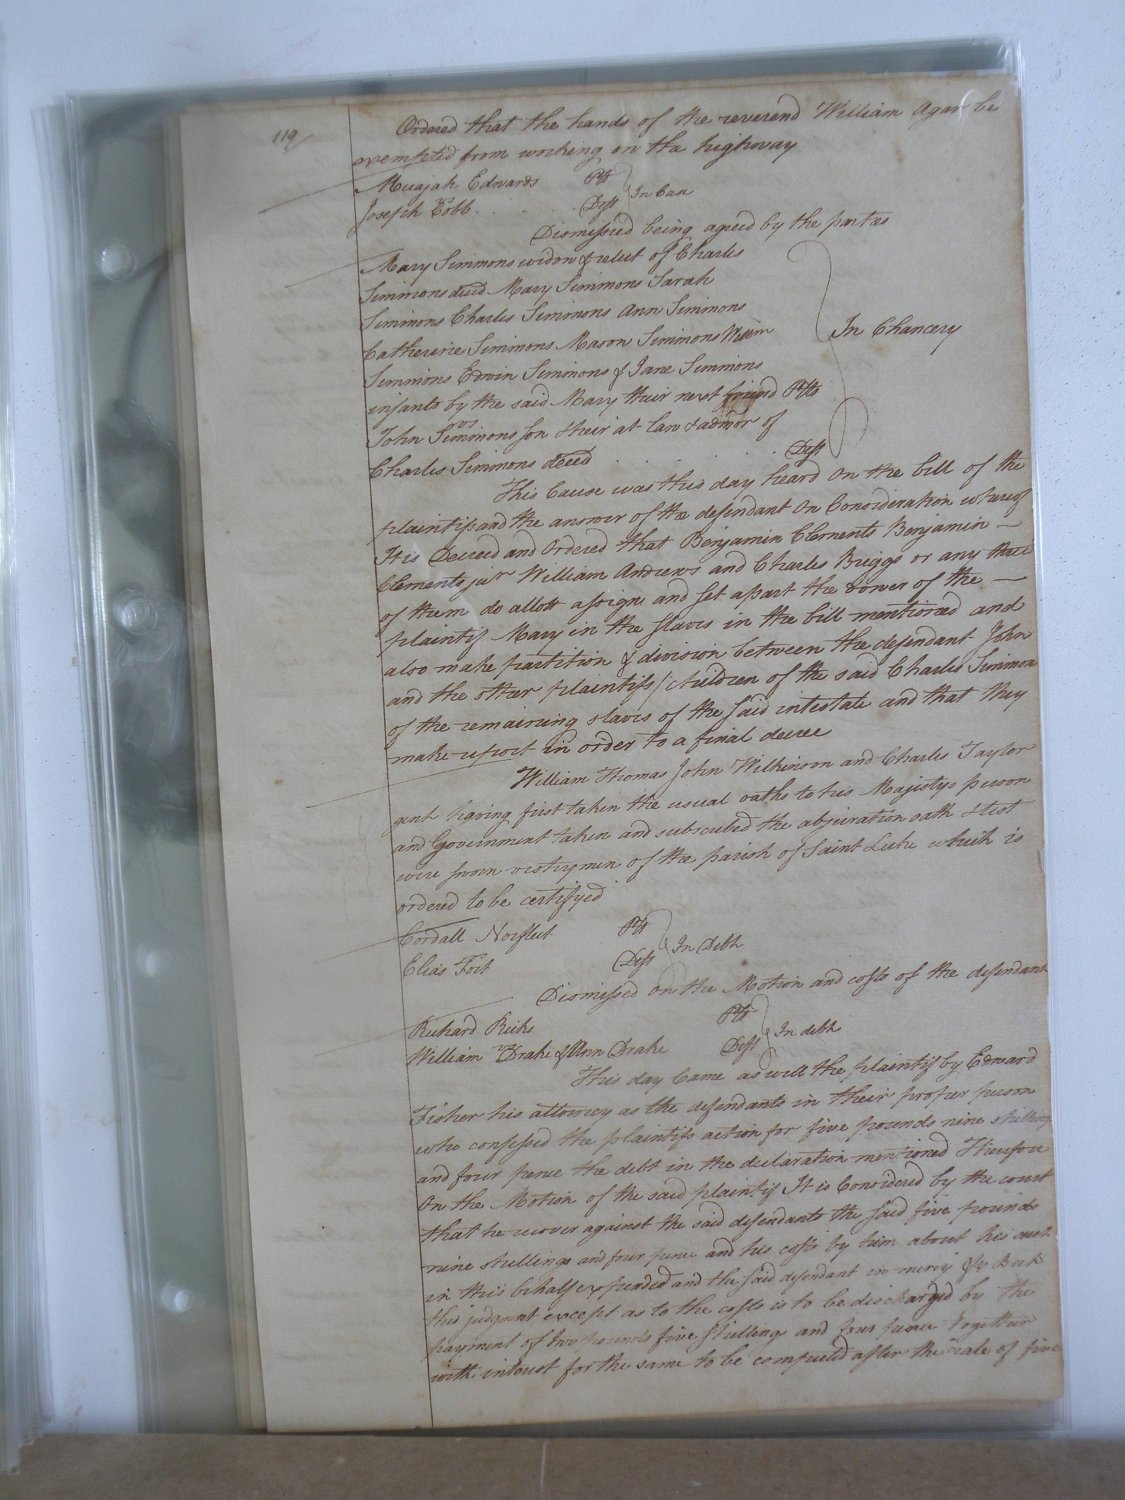 119
Ordered that the hands of the reverend William Agar be
exempted from working on the highway
Micajah Edwards Plt
vs
Joseph Cobb . . . Deft } In Case
Dismissed being agreed by the parties
Mary Simmons widow & relict of Charles
Simmons decd Mary Simmons Sarah
Simmons Charles Simmons Ann Simmons
Catherine Simmons Mason Simmons Willm
Simmons Edwin Simmons & Jane Simmons
infants by the said Mary their next friend Plts
vs
John Simmons son & heir at law & admor of
Charles Simmons decd . . . . Deft
} In Chancery
This Cause was this day heard On the bill of the
plaintifs and the answer of the defendant On Consideration whereof
It is Decreed and Ordered that Benjamin Clements Benjamin
Clements junr William Andrews and Charles Briggs or any three
of them do allott assign and set apart the dower of the
plaintif Mary in the slaves in the bill mentioned and
also make partition & division between the defendant John
and the other plaintifs children of the said Charles Simmons
of the remaining slaves of the said intestate and that they
make report in order to a final decree
William Thomas John Wilkinson and Charles Taylor
gent having first taken the usual oaths to his Majestys person
and Government taken and subscribed the abjuration oath & test
were sworn vestrymen of the parish of Saint Luke which is
ordered to be certifyed
Cordall Norfleet Plt
Elias Fort Deft } In Debt
Dismissed on the Motion and costs of the defendant
Richard Ricks Plt
vs
William Drake & Ann Drake Deft } In debt
This day Came as well the plaintif by Edward
Fisher his attorney as the defendants in their proper person
who confessed the plaintifs action for five pounds nine shillings
and four pence the debt in the declaration mentioned Therefore
On the Motion of the said plaintif It is Considered by the court
that he recover against the said defendants the said five pounds
nine shillings and four pence and his costs by him about his suit
in this behalf expended and the said defendant in mercy &c But
this judgment except as to the costs is to be discharged by the
payment of two pounds five shillings and four pence together
with interest for the same to be computed after the rate of five